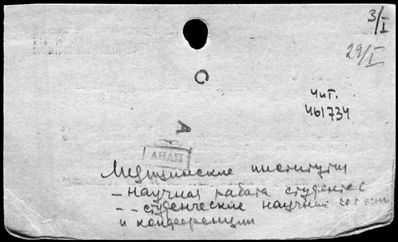 3/I
29/I
С
А
чит.
461734
Медицинские институты
– научная работа студентов
– – студенческие научные
и конференции